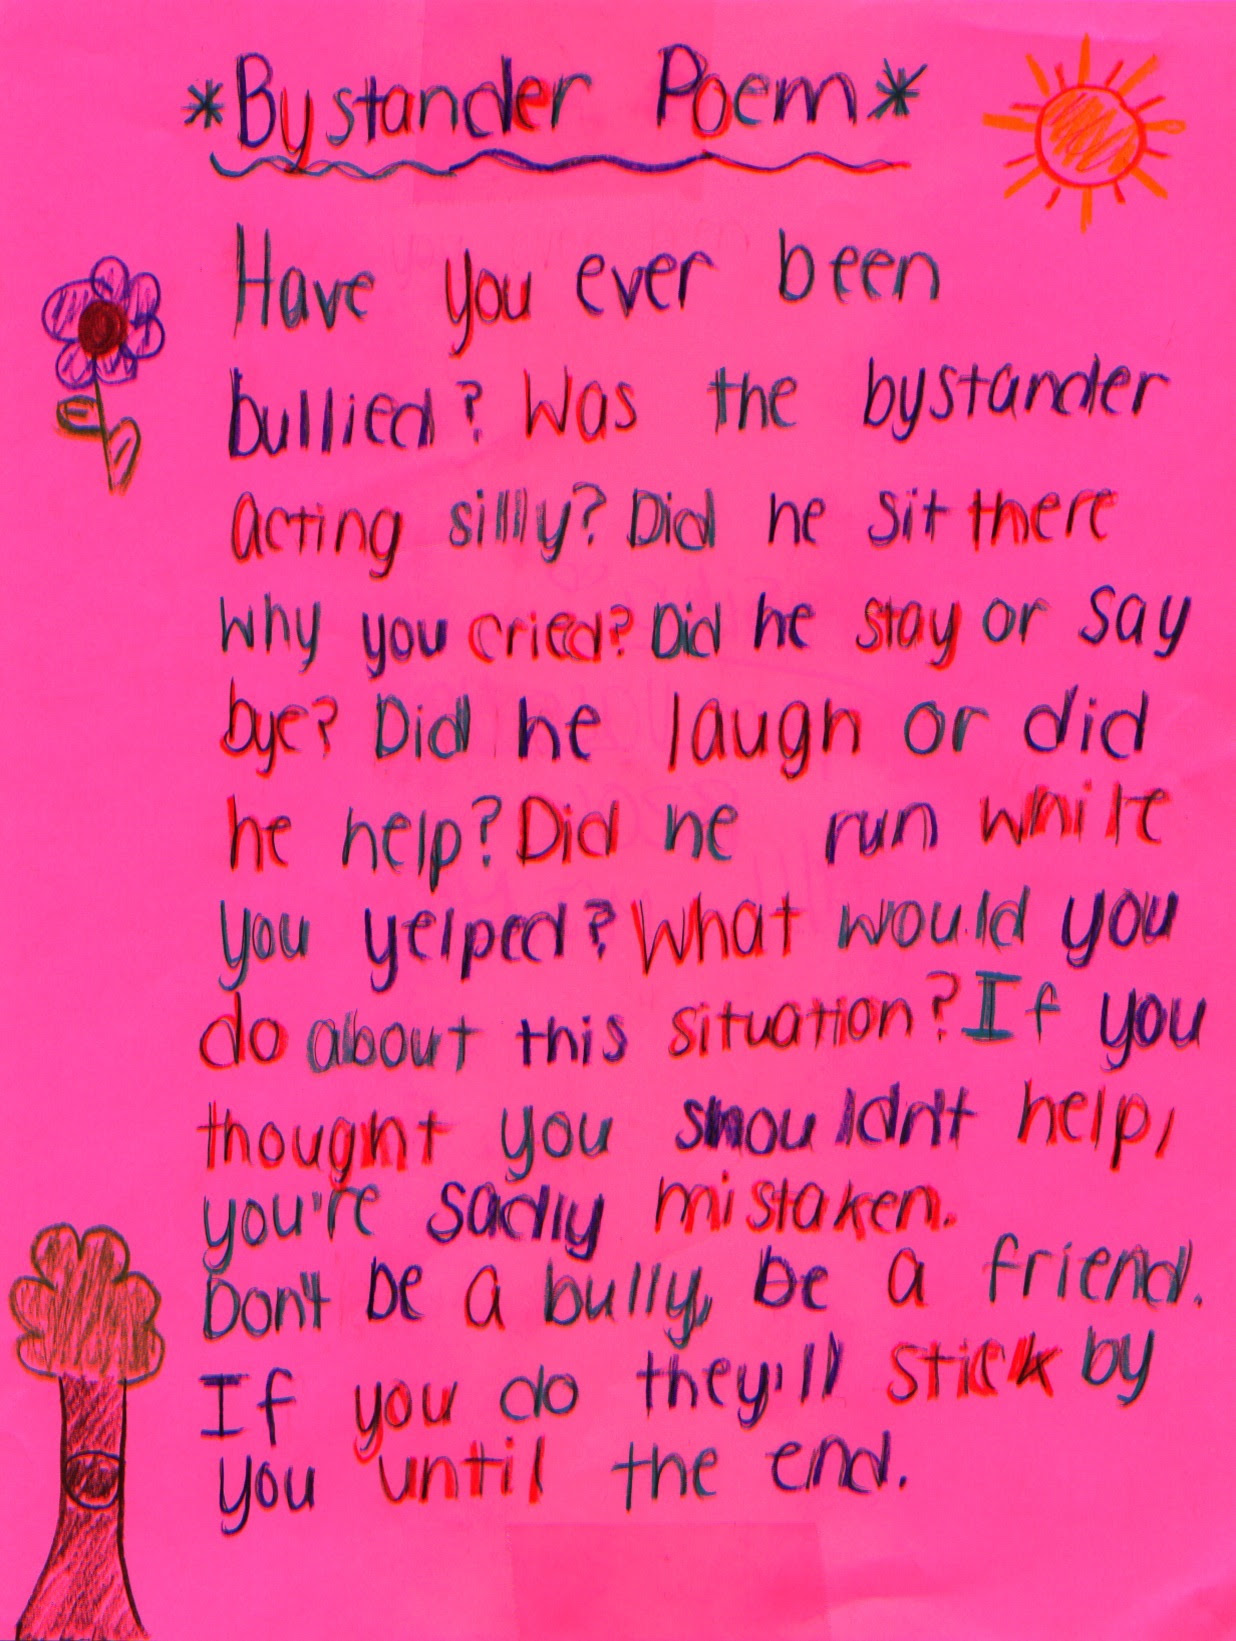 *Bystander Poem*
Have you ever been
bullied? Was the bystander
acting silly? Did he sit there
why you cried? Did he stay or say
bye? Did he laugh or did
he help? Did he run while
you yelped? What would you
do about this situation? If you
thought you shouldn't help,
you're sadly mistaken.
Don't be a bully, be a friend.
If you do they'll stick by
you until the end.